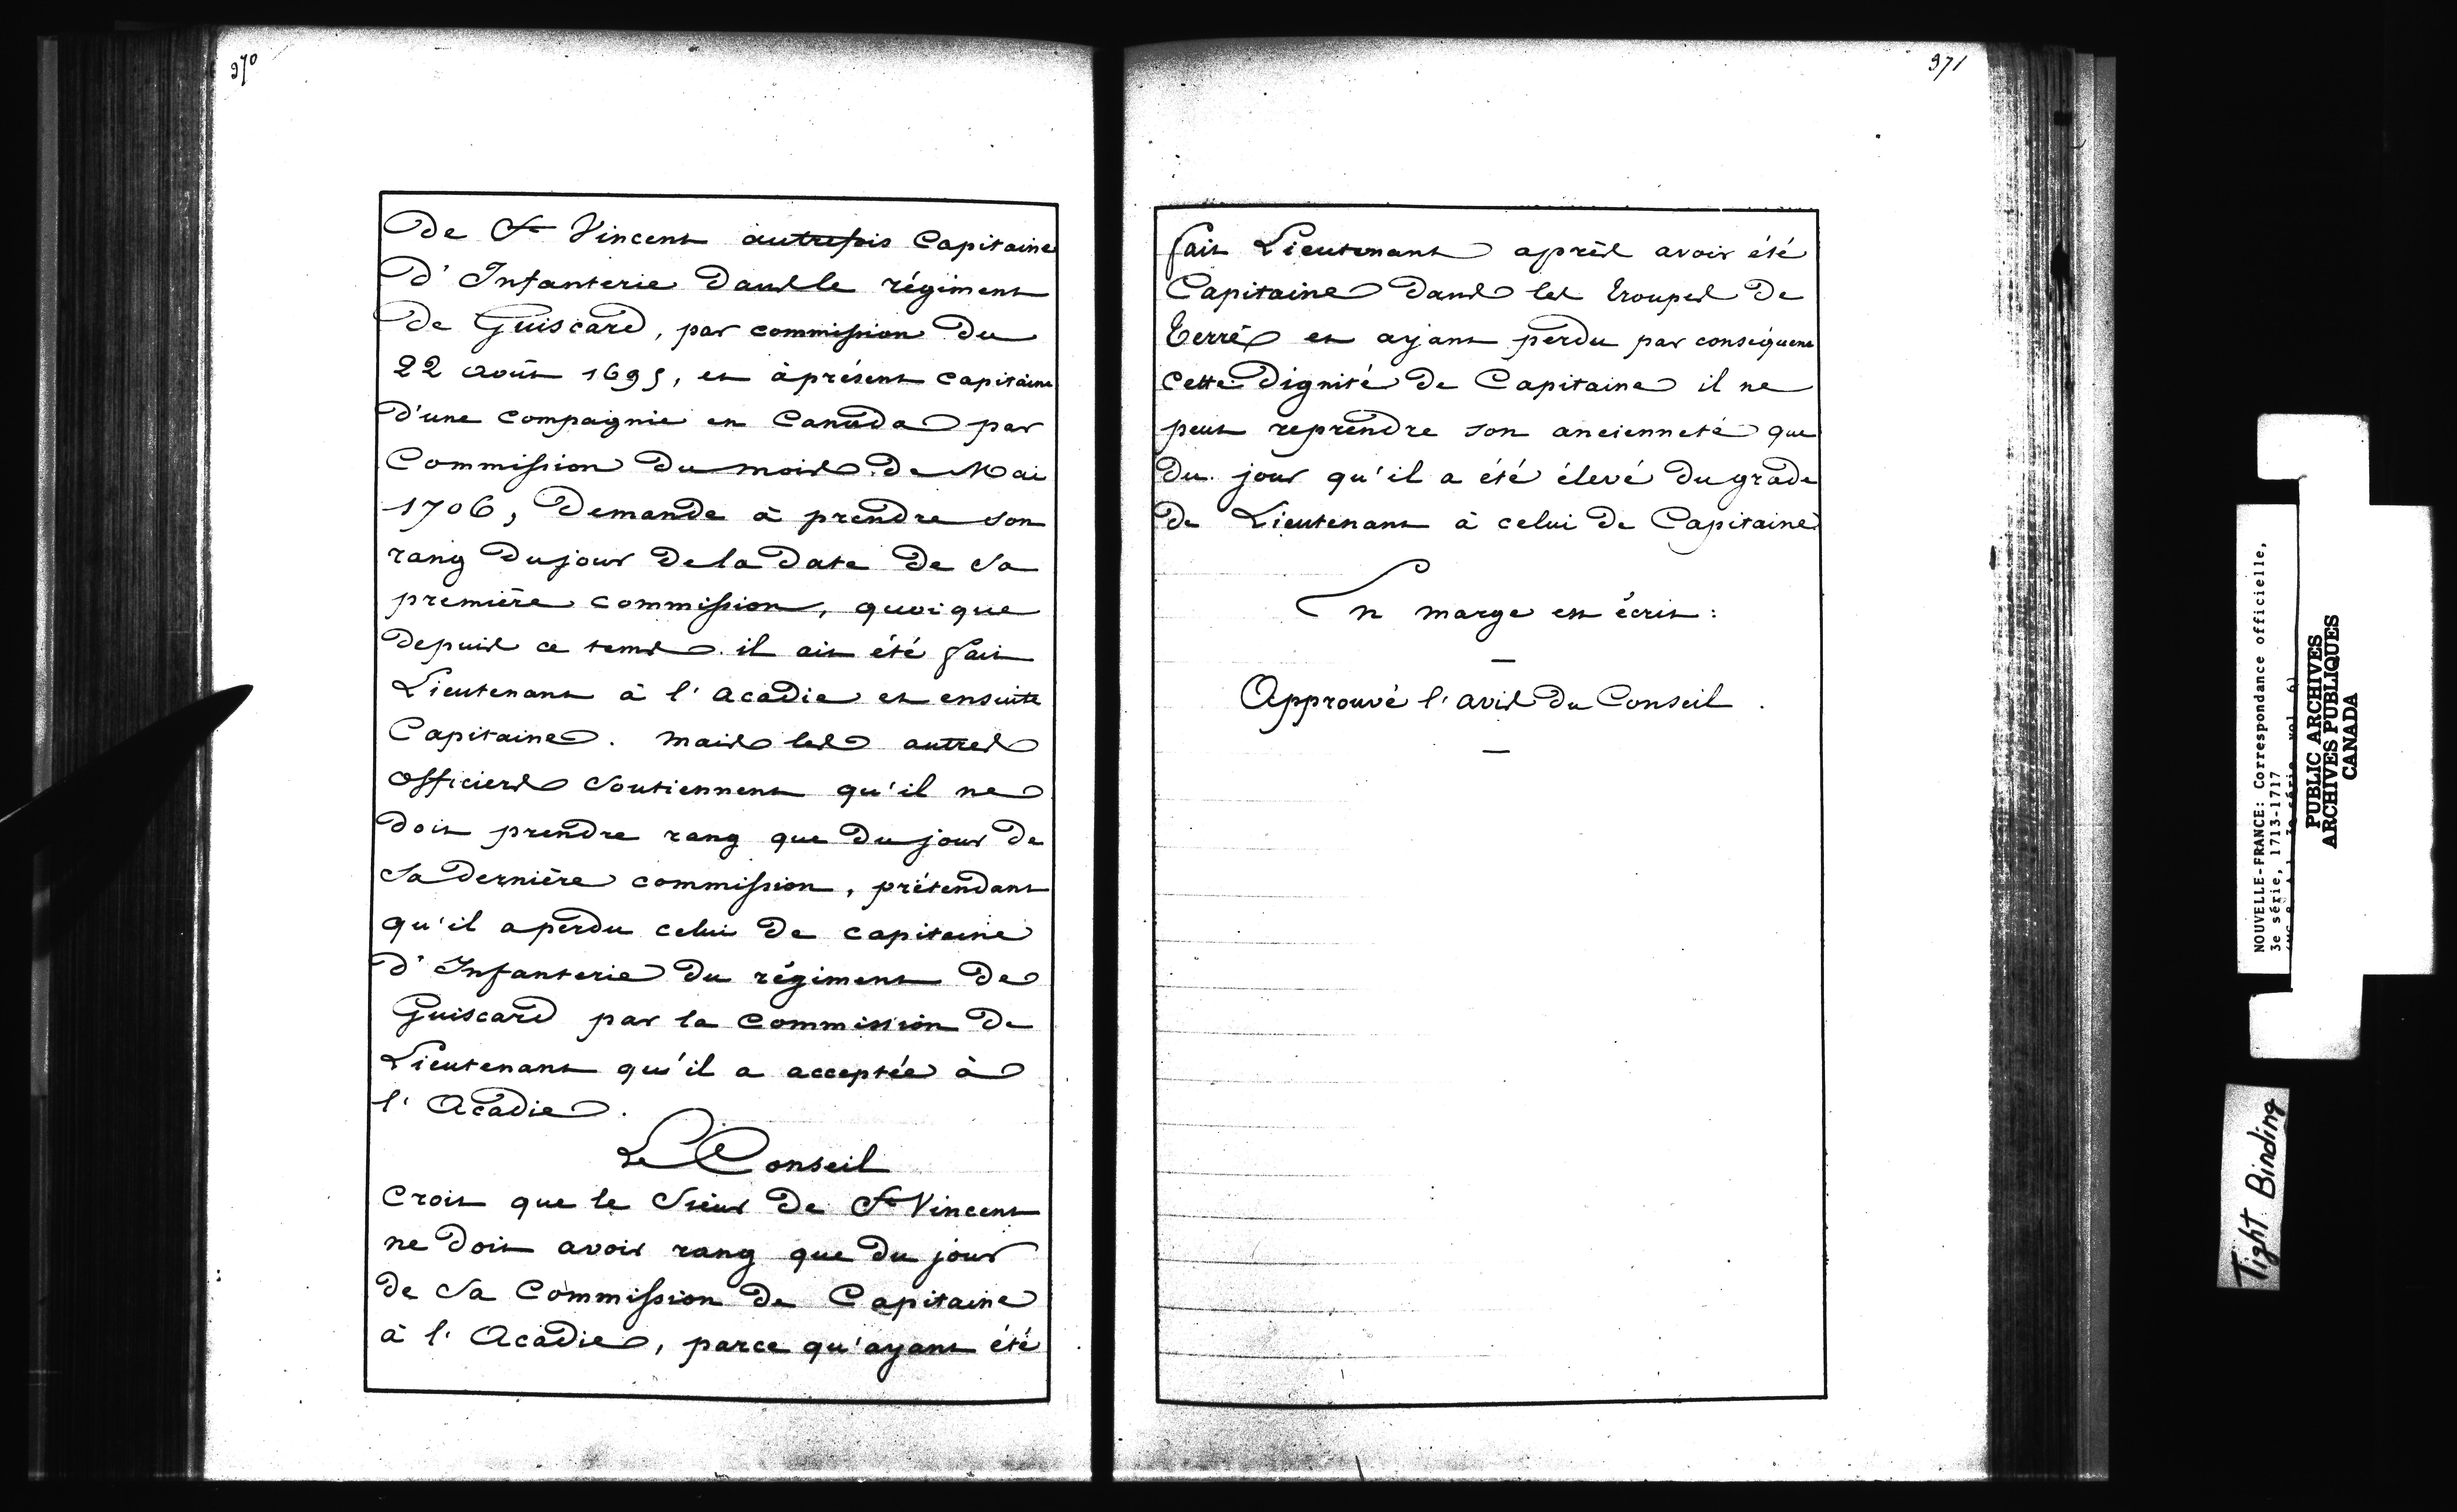 370
De St Vincent autrefois Capitaine
D'Infanterie dans le régiment
De Guiscard, par commission du
22 août 1695, et àprésent capitaine
d'une compagnie en Canada par
Commission du mois de Mai
1706, Demande à prendre son
rang du jour de la date de sa
première commission, quoique
depuis ce tems il ait été fait
Lieutenant à l'acadie et ensuite
Capitaine. mais les autres
officiers soutiennent qu'il ne
doit prendre rang que du jour de
sa dernière commission, prétendant
qu'il a perdu celui de capitaine
d'Infanterie du régiment de
Guiscard par la commission de
Lieutenant qu'il a acceptée à
l'Acadie.
Le Conseil
croit que le Sieur de St Vincent
ne doit avoir rang que du jour
de sa Commission de Capitaine
à l'Acadie, parce qu'ayant été
371
fait Lieutenant après avoir été
Capitaine dans les troupes de
terre et ayant perdu par conséquent
cette dignité de Capitaine il ne
peut reprendre son ancienneté que
du jour qu'il a été élevé du grade
de Lieutenant à celui de Capitaine
En marge est écrit :
—
Approuvé l'avis du Conseil.
—
NOUVELLE-FRANCE: Correspondance officielle,
3e série, 1713-1717
PUBLIC ARCHIVES
ARCHIVES PUBLIQUES
CANADA
Tight Binding